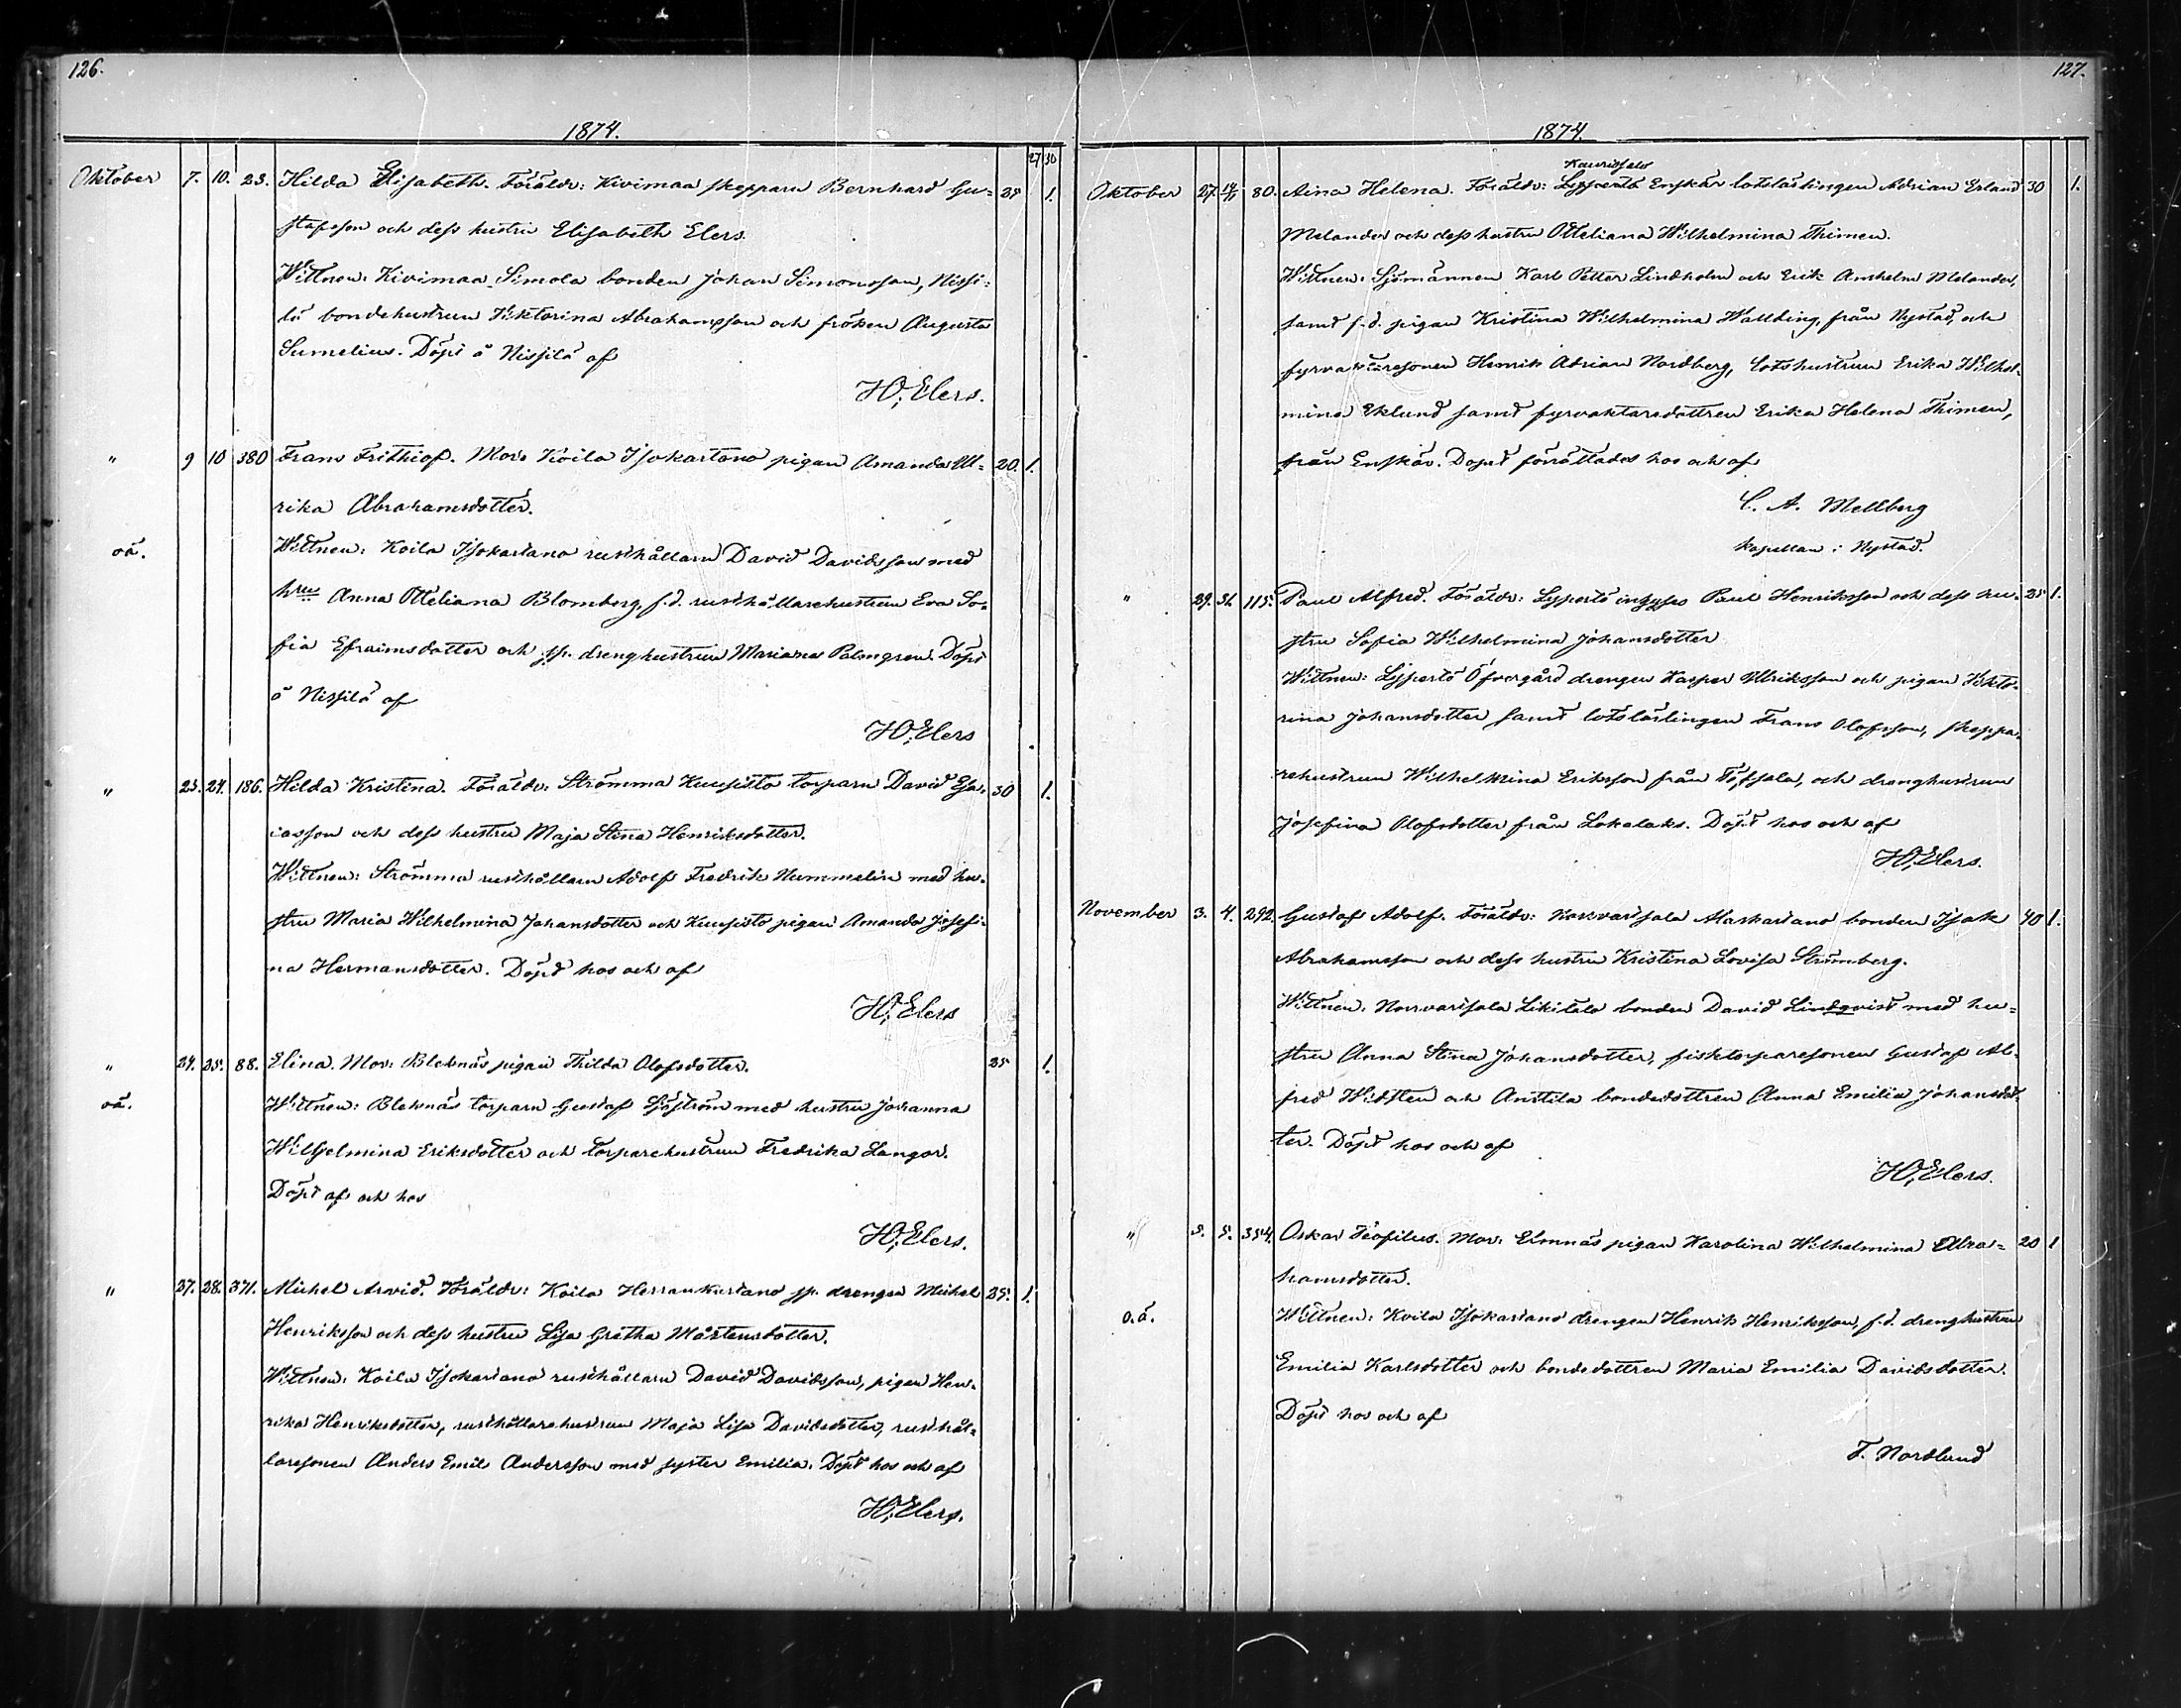 126.
1874.
27 30
Oktober 7. 10. 23. Hilda Elisabeth. Föräldr: Kivimaa skepparn Bernhard Gu- 25 1.
stafsson och dess hustru Elisabeth Elers.
Wittnen: Kivimaa Simola bonden Johan Simonsson, Nissi-
lä bondehustrun Viktorina Abrahamsson och fröken Augusta
Sumelius. Döpt å Nissilä af
H. Elers.
" 9 10 380 Frans Frithiof. Mor: Koila Isokartano pigan Amanda Ul- 20. 1.
rika Abrahamsdotter.
oä. Wittnen: Koila Isokartano rusthållarn David Davidsson med
hru Anna Otteliana Blomberg, f.d. rusthållarehustrun Eva So-
fia Efraimsdotter och sp. dreng hustrun Mariana Palmgren. Döpt
å Nissilä af
H. Elers
" 23. 24. 186. Hilda Kristina. Föräldr: Strömma Kuusisto torparn David Esa- 30 1.
iasson och dess hustru Maja Stina Henriksdotter.
Wittnen: Strömma rusthållarn Adolf Fredrik Nummelin med hu-
stru Maria Wilhelmina Johansdotter och Kuusisto pigan Amanda Josefi-
na Hermansdotter. Döpt hos och af
H. Elers
" 24. 25. 88. Elina. Mor: Bleknäs pigan Thilda Olofsdotter. 25 1.
oä. Wittnen: Bleknäs torparn Gustaf Sjöström med hustru Johanna
Wilhelmina Eriksdotter och torparehustrun Fredrika Langor.
Döpt af och hos
H. Elers.
" 27. 28. 371. Mickel Arvid. Föräldr: Koila Herrankartano sp. drengen Mickel 25. 1.
Henriksson och dess hustru Lisa Gretha Mårtensdotter.
Wittnen: Koila Isokartano rusthållarn David Davidsson, pigan Hen-
rika Henriksdotter, rusthållarehustrun Maja Lisa Davidsdotter, rusthål-
laresonen Anders Emil Andersson med syster Emilia. Döpt hos och af
H. Elers.
127.
1874.
Kaurissalo
Oktober 27. 80. Aina Helena. Föräldr: Lypertö Enskär lotslärlingen Adrian Erland 30 1.
Melander och dess hustru Otteliana Wilhelmina Thimen.
Wittnen: Sjömännen Karl Petter Lindholm och Erik Anshelm Melander,
samt f.d. pigan Kristina Wilhelmina Wallding, från Nystad, och
fyrvaktaresonen Henrik Adrian Nordberg, lotshustrun Erika Wilhel-
mina Eklund samt fyrvaktaredottren Erika Helena Thimen,
från Enskär. Dopet förrättades hos och af
C. A. Mellberg
kapellan i Nystad.
" 29. 31. 115. Paul Alfred. Föräldr: Lypertö inhyses Paul Henriksson och dess hu- 25 1.
stru Sofia Wilhelmina Johansdotter
Wittnen: Lypertö Öfvergård drengen Kasper Ulriksson och pigan Vikto-
rina Johansdotter samt lotslärlingen Frans Olofsson, skeppa-
rehustrun Wilhelmina Eriksson från Töfsala, och drenghustrun
Josefina Olofsdotter från Lokalaks. Döpt hos och af
H. Elers.
November 3. 4. 292. Gustaf Adolf. Föräldr: Norrvartsala Alaskartano bonden Isak 40 1.
Abrahamsson och dess hustru Kristina Lovisa Strömberg.
Wittnen: Norrvartsala Likitalo bonden David Lindqvist med hu-
stru Anna Stina Johansdotter, fisktorparesonen Gustaf Al-
fred Widsten och Anttila bondedottren Anna Emilia Johansdot-
ter. Döpt hos och af
H. Elers.
" 3. 5. 354. Oskar Teofilus. Mor: Elmnäs pigan Karolina Wilhelmina Abra- 20 1
hamsdotter.
o.ä. Wittnen: Koila Isokartano drengen Henrik Henriksson, f.d. drenghustrun
Emilia Karlsdotter och bondedottren Maria Emilia Davidsdotter.
Döpt hos och af
F. Nordlund